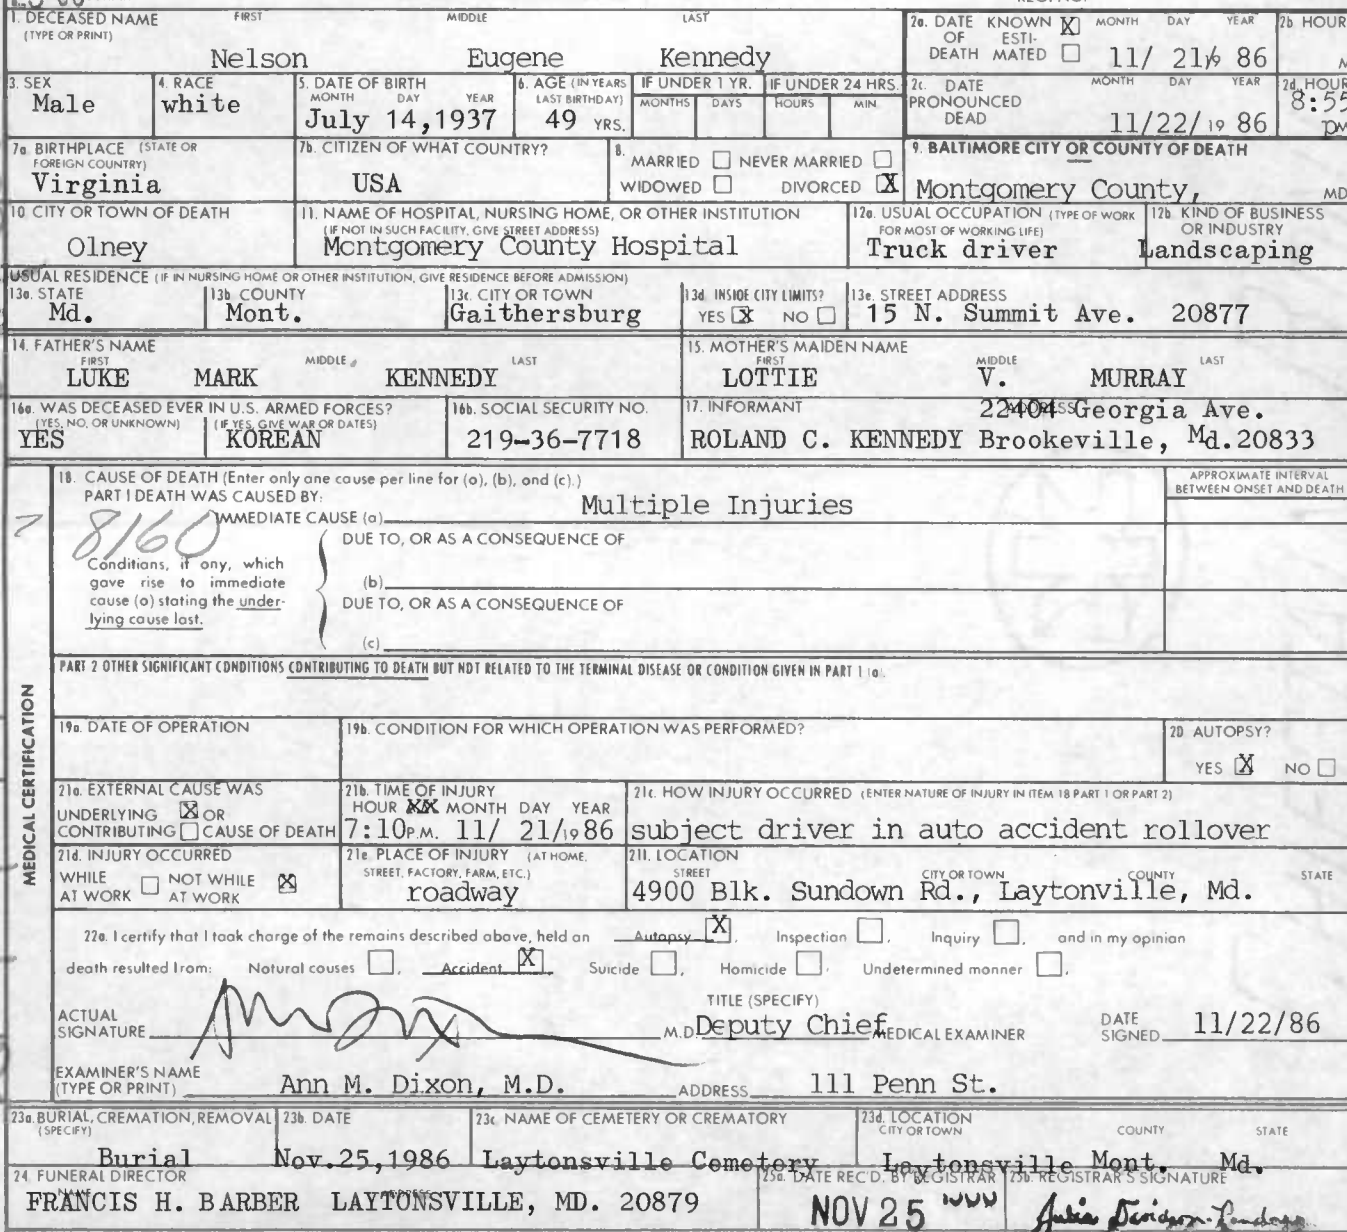 1. DECEASED NAME FIRST MIDDLE LAST
(TYPE OR PRINT)
Nelson Eugene Kennedy
2a. DATE KNOWN X MONTH DAY YEAR
OF ESTI-
DEATH MATED 11/ 21/19 86
2b HOUR
M
3. SEX
Male
4. RACE
white
5. DATE OF BIRTH
MONTH DAY YEAR
July 14,1937
6. AGE (IN YEARS
LAST BIRTHDAY)
49 YRS.
IF UNDER 1 YR.
MONTHS DAYS
IF UNDER 24 HRS.
HOURS MIN.
2c. DATE MONTH DAY YEAR
PRONOUNCED
DEAD 11/22/ 19 86
2d. HOUR
8:55
pm
7a. BIRTHPLACE (STATE OR
FOREIGN COUNTRY)
Virginia
7b. CITIZEN OF WHAT COUNTRY?
USA
8.
MARRIED NEVER MARRIED
WIDOWED DIVORCED X
9. BALTIMORE CITY OR COUNTY OF DEATH
Montgomery County, MD
10. CITY OR TOWN OF DEATH
Olney
11. NAME OF HOSPITAL, NURSING HOME, OR OTHER INSTITUTION
(IF NOT IN SUCH FACILITY, GIVE STREET ADDRESS)
Montgomery County Hospital
12a. USUAL OCCUPATION (TYPE OF WORK
FOR MOST OF WORKING LIFE)
Truck driver
12b. KIND OF BUSINESS
OR INDUSTRY
Landscaping
USUAL RESIDENCE (IF IN NURSING HOME OR OTHER INSTITUTION, GIVE RESIDENCE BEFORE ADMISSION)
13a. STATE
Md.
13b COUNTY
Mont.
13c. CITY OR TOWN
Gaithersburg
13d. INSIDE CITY LIMITS?
YES X NO
13e. STREET ADDRESS
15 N. Summit Ave. 20877
14. FATHER'S NAME
FIRST MIDDLE LAST
LUKE MARK KENNEDY
15. MOTHER'S MAIDEN NAME
FIRST MIDDLE LAST
LOTTIE V. MURRAY
16a. WAS DECEASED EVER IN U.S. ARMED FORCES?
(YES, NO, OR UNKNOWN) (IF YES, GIVE WAR OR DATES)
YES KOREAN
16b. SOCIAL SECURITY NO.
219-36-7718
17. INFORMANT ADDRESS
22404 Georgia Ave.
ROLAND C. KENNEDY Brookeville, Md.20833
18. CAUSE OF DEATH (Enter only one cause per line for (a), (b), and (c).)
PART I DEATH WAS CAUSED BY:
IMMEDIATE CAUSE (a) Multiple Injuries
8160
APPROXIMATE INTERVAL
BETWEEN ONSET AND DEATH
DUE TO, OR AS A CONSEQUENCE OF
Conditions, if any, which
gave rise to immediate
cause (a) stating the under-
lying cause last.
(b)
DUE TO, OR AS A CONSEQUENCE OF
(c)
PART 2 OTHER SIGNIFICANT CONDITIONS CONTRIBUTING TO DEATH BUT NOT RELATED TO THE TERMINAL DISEASE OR CONDITION GIVEN IN PART 1 (a).
MEDICAL CERTIFICATION
19a. DATE OF OPERATION
19b. CONDITION FOR WHICH OPERATION WAS PERFORMED?
20 AUTOPSY?
YES X NO
21a. EXTERNAL CAUSE WAS
UNDERLYING X OR
CONTRIBUTING CAUSE OF DEATH
21b. TIME OF INJURY
HOUR XX MONTH DAY YEAR
7:10P.M. 11/ 21/1986
21c. HOW INJURY OCCURRED (ENTER NATURE OF INJURY IN ITEM 18 PART 1 OR PART 2)
subject driver in auto accident rollover
21d. INJURY OCCURRED
WHILE NOT WHILE X
AT WORK AT WORK
21e. PLACE OF INJURY (AT HOME,
STREET, FACTORY, FARM, ETC.)
roadway
21f. LOCATION
STREET CITY OR TOWN COUNTY STATE
4900 Blk. Sundown Rd., Laytonville, Md.
22a. I certify that I took charge of the remains described above, held an Autopsy X, Inspection , Inquiry , and in my opinion
death resulted from: Natural causes , Accident X, Suicide , Homicide , Undetermined manner .
ACTUAL
SIGNATURE
M.D.
TITLE (SPECIFY)
Deputy Chief MEDICAL EXAMINER
DATE
SIGNED 11/22/86
EXAMINER'S NAME
(TYPE OR PRINT) Ann M. Dixon, M.D.
ADDRESS 111 Penn St.
23a. BURIAL, CREMATION, REMOVAL
(SPECIFY)
Burial
23b. DATE
Nov.25,1986
23c. NAME OF CEMETERY OR CREMATORY
Laytonsville Cemetery
23d. LOCATION
CITY OR TOWN COUNTY STATE
Laytonsville Mont. Md.
24. FUNERAL DIRECTOR
FRANCIS H. BARBER LAYTONSVILLE, MD. 20879
25a. DATE REC'D. BY REGISTRAR
NOV 25
25b. REGISTRAR'S SIGNATURE